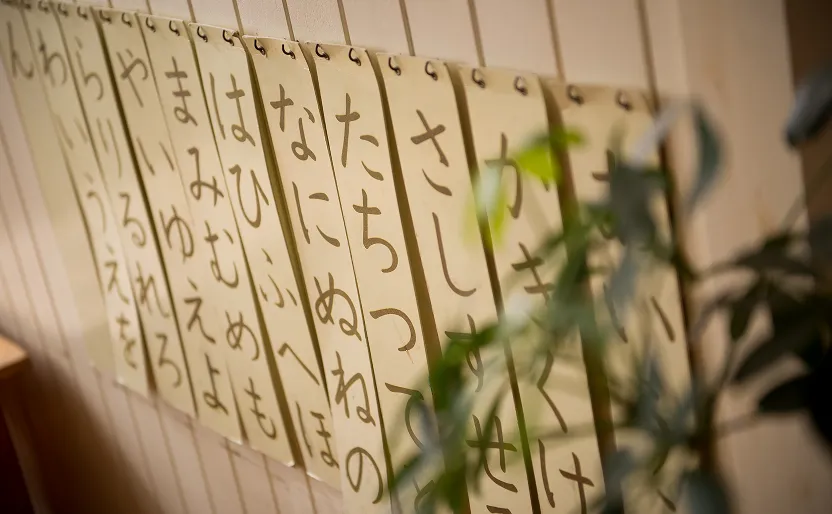 かきくけ
さしすせ
たちつて
なにぬねの
はひふへほ
まみむめも
やいゆえよ
らりるれろ
わいうえを
ん